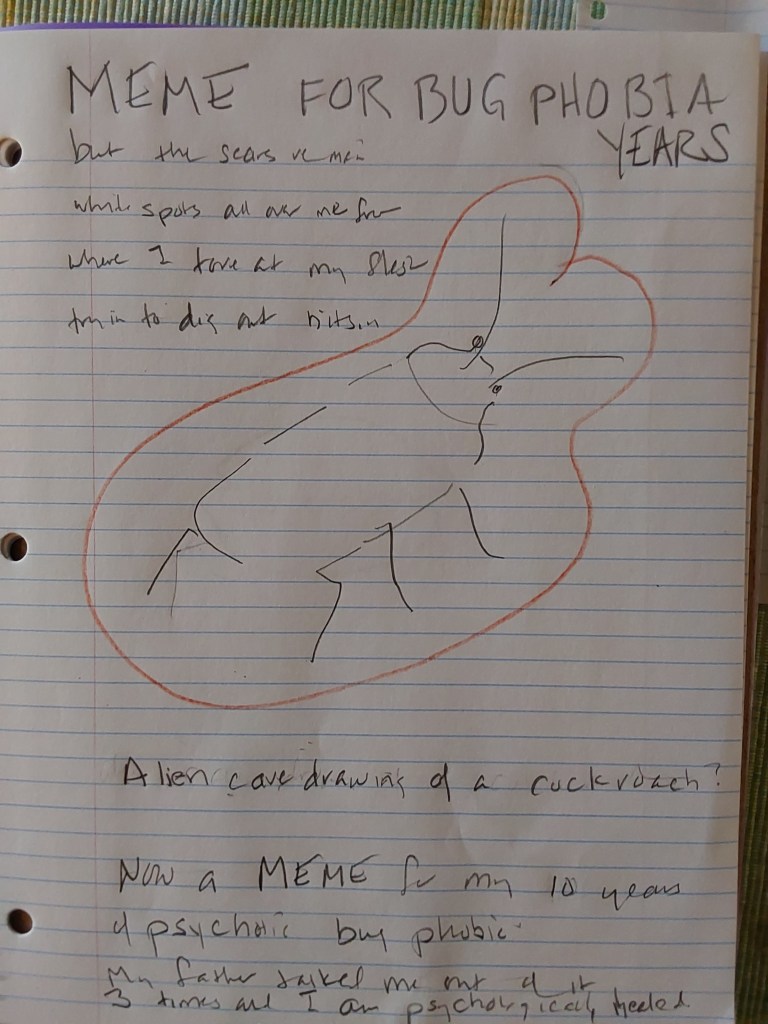 MEME FOR BUG PHOBIA
YEARS
but the scars remain
white spots all over me from
where I tore at my flesh
tryin to dig out
Alien cave drawing of a cockroach?
Now a MEME for my 10 years
of psychotic bug phobia
My father talked me out of it
3 times and I am psychologically healed